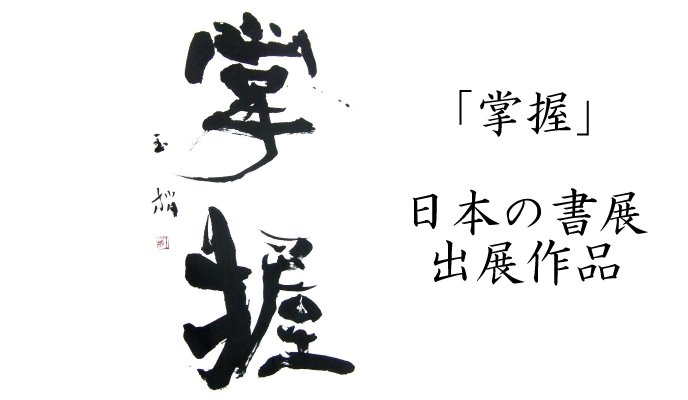 掌握
玉
「掌握」
日本の書展
出展作品